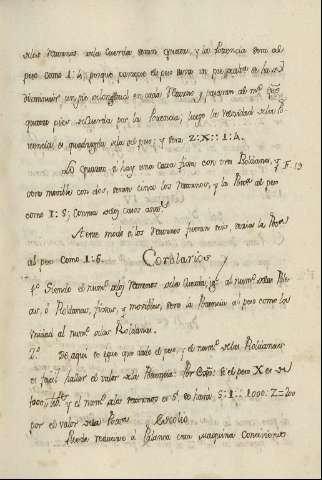 de los ramos de la cuerda seran quatro, y la potencia sera al
peso como 1: 4; porque para que el peso suba un pie, cada
disminuir un pie de longitud en cada Ramo, y pasaran al mº. 
quatro pies de Cuerda por la Potencia, luego la velocidad de la Po
tencia es quadrupla de la del peso; y sera Z:X:: 1:4.
Lo quinto si hay una Caxa fixa con tres Roldanas, y F. 13
otra movible con dos, seran cinco los ramos, y la Potª. al peso
como 1: 5; Como
A este modo si los ramos fueran seis, seria la Potª.
al peso como 1:6.
Corolarios
1º. Siendo el numº. de los ramos de la Cuerda, al numº. de las Po
leas, ó Roldanas, fixas, y movibles, sera la Potencia al peso como la
Unidad al numº. de las Roldanas.
2º. De aqui se sigue que dado el peso, y el numº. de las Roldanas
es facil hallar el valor de la Potencia: Por Exº: Si el peso X es de
1000 y el numº. de los ramos es 5, se hará, 5: 1:: 1000. Z=200
por el valor de la Potª.
Escolio
Puede reducirse á palanca esta maquina considerando